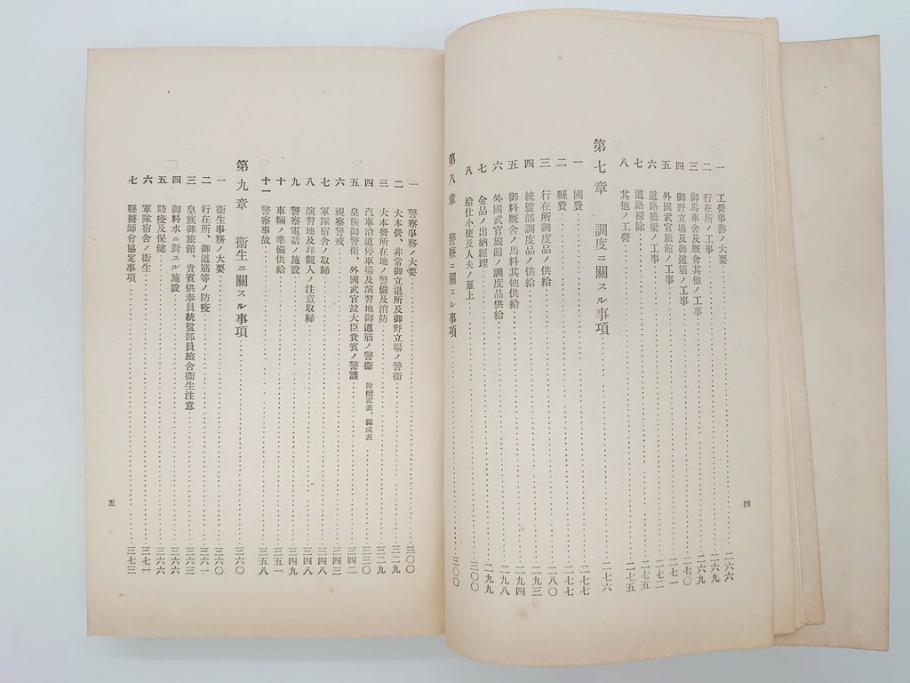 一 工營事務ノ大要 二六六
二 行在所ノ工事 二六九
三 御馬車舍及厩舍其他ノ工事 二六九
四 御野立場及御道筋ノ工事 二七〇
五 外國武官旅館ノ工事 二七一
六 道路橋梁ノ工事 二七二
七 道路掃除 二七五
八 其他ノ工營 二七五
第七章 調度ニ關スル事項 二七六
一 國費 二七七
二 縣費 二八〇
三 行在所調度品ノ供給
四 統監部調度品ノ供給 二九三
五 御料厩舍ノ馬料其他供給
六 外國武官旅館ノ調度品供給 二九八
七 金品ノ出納經理 二九九
八 給仕小使及人夫ノ雇上 三〇〇
第八章 警察ニ關スル事項 三〇〇
四
一 警察事務ノ大要 三〇〇
二 大本營、非常御立退所及御野立場ノ警衞 三一九
三 大本營所在地ノ警備及消防 三二九
四 汽車沿道停車場及演習地御道筋ノ警衞 附配置表、編成表 三三〇
五 皇族御警衞、外國武官竝大臣貴賓ノ警護 三四二
六 視察警戒 三四三
七 軍隊宿舍ノ取締 三四八
八 演習地及拜觀人ノ注意取締 三四八
九 警察電話ノ施設 三四九
十 車輛ノ準備供給 三五一
十一 警察事故 三五八
第九章 衞生ニ關スル事項 三六〇
一 衞生事務ノ大要 三六〇
二 行在所、御道筋等ノ防疫 三六一
三 皇族御旅館、貴賓供奉員統監部員旅舍衞生注意 三六三
四 御料水ニ對スル施設 三六六
五 防疫及保健 三六六
六 軍隊宿舍ノ衞生 三七一
七 縣醫師會協定事項 三七三
五